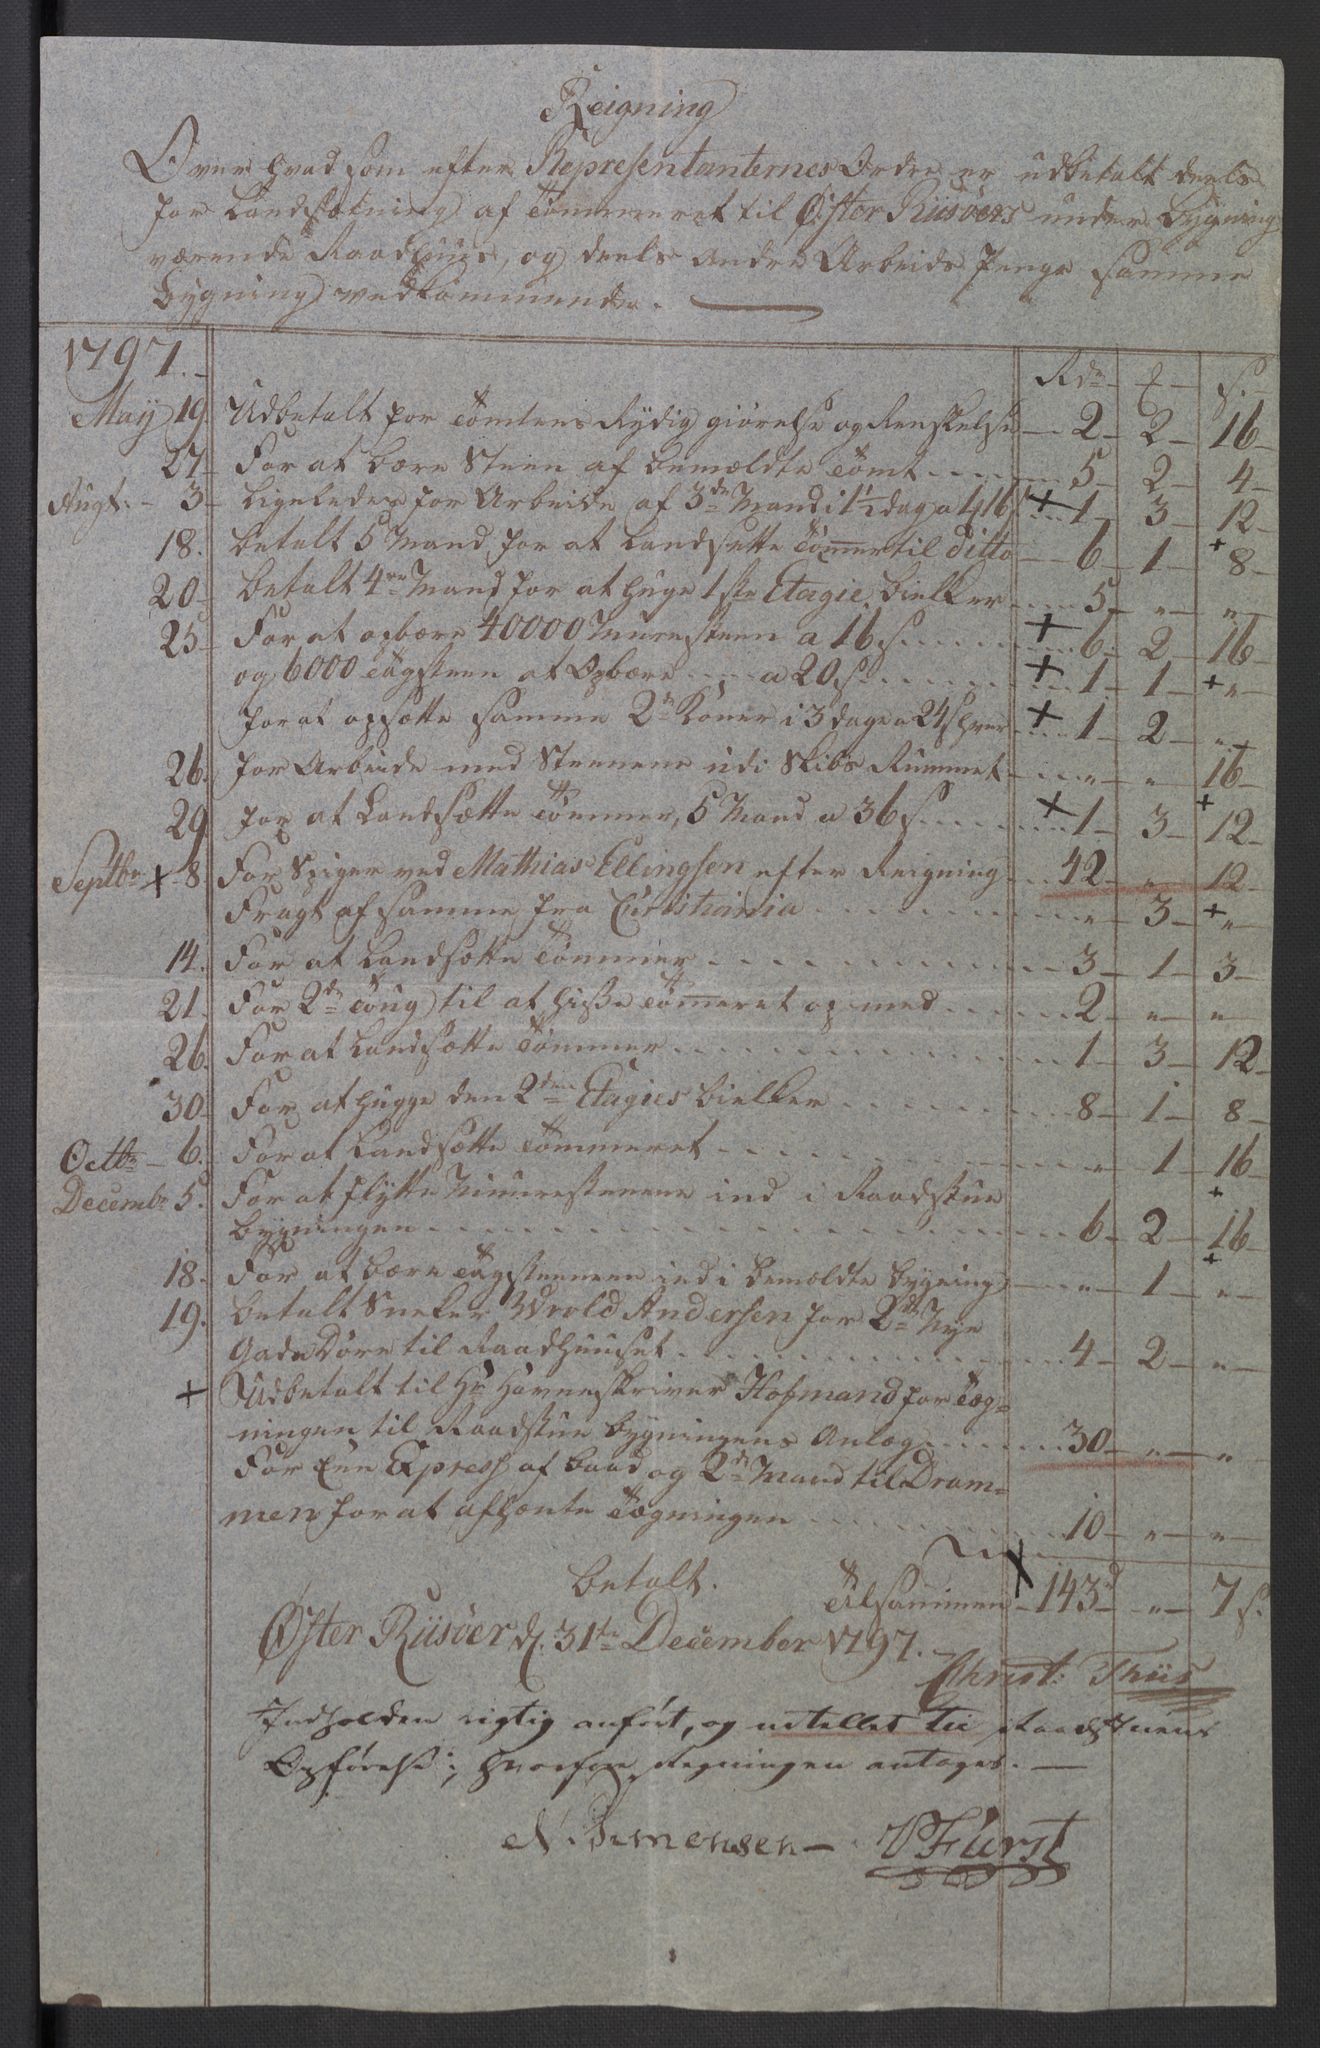 Reigning
Over hvad som efter Representanternes Ordre er udbetalt deels
for Landsætning af Tømmeret til Øster Riisöers under bygning
værende Raadhuus, og deels andre Arbeids Penge samme
bygning vedkommende.
1797. Rdr ʒ s.
May 19 Udbetalt for Tomtens Rydig giörelse og Renskelse 2 2 16
27 For at bære Steen af bemældte Tomt 5 2 4
Augt: 3 Ligeledes for Arbeide af 3de Mand i 1½ dag a 4 16 + 1 3 12
18. betalt 5 Mand for at Landsætte Tömmer til ditto 6 1 + 8
20 betalt 4re Mand for at huge 1ste Etagie bielker 5 " "
25 For at opbære 40000 Muresteen a 16 s + 6 2 16
og 6000 Tagsteen at Opbære a 20 s + 1 1 + "
for at opsætte samme 2de Koner i 3 dage a 24 s hver + 1 2 "
26. for Arbeide med Steenene udi Skibs Rummet " " 16
29 for at Landsætte Tömmer, 5 Mand a 36 s + 1 3 + 12
Septbr + 8 For Spiger ved Mathias Ellingsen efter Reigning 42 " 12
Fragt af samme fra Christiania " 3 + "
14. For at Landsætte Tömmer 3 1 3
21. For 2de Toug til at hisse Tömeret op med 2 " "
26. For at Landsætte Tömmer 1 3 12
30 For at hugge den 2den Etagies bielker 8 1 8
Octbr 6. For at Landsætte Tömmeret " 1 16
Decembr 5. For at flytte Muurestenene ind i Raadstue +
bygningen 6 2 16
18. For at bære Tagsteenene ind i bemældte bygning " 1 + "
19. betalt Sneker Wrold Andersen for 2de Nye
Gade Döre til Raadhuuset 4 2 "
+ Udbetalt til Hr Havneskriver Hofmand for Teg=
ningen til Raadstue bygningens Anlæg 30 " "
For Een Express af baad og 2de Mand til Dram=
men for at afhænte Tegningen 10 " "
betalt. Tilsammen + 143 d " 7 s.
Øster Riisöer d. 31te December 1797.
Christ: Thiis
Indholden rigtig anfört, og til Raadstuens
Opförelse; hvorfor Regningen antages.
N. Simonsen PFürst